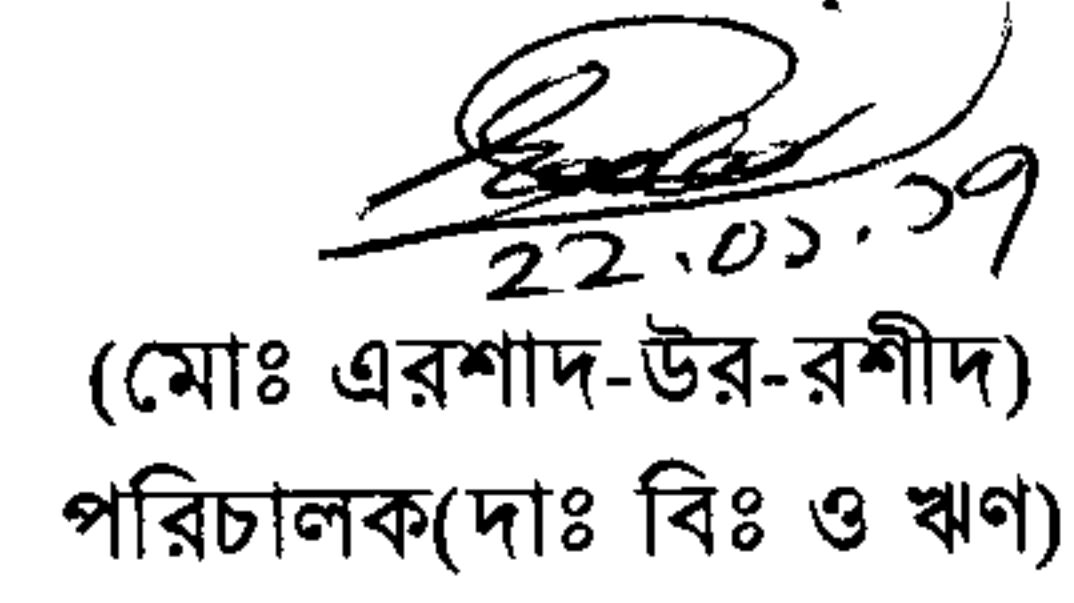 ২২.০১.১৭
(মোঃ এরশাদ-উর-রশীদ)
পরিচালক(দাঃ বিঃ ও ঋণ)